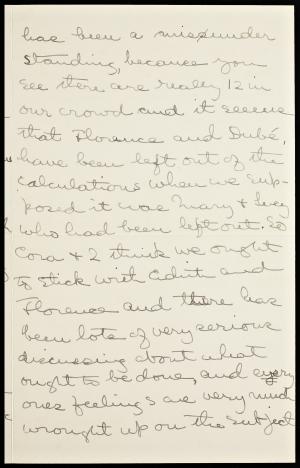 has been a misunder
standing, because you
see there are really 12 in
our crowd and it seems
that Florence and Dubé,
have been left out of the
calculations when we sup-
posed it was Mary & Lucy
who had been left out. So
Cora & I think we ought
to stick with and
Florence and there has
been lots of very serious
discussing about what
ought to be done, and every
ones feelings are very much
wrought up on the subject